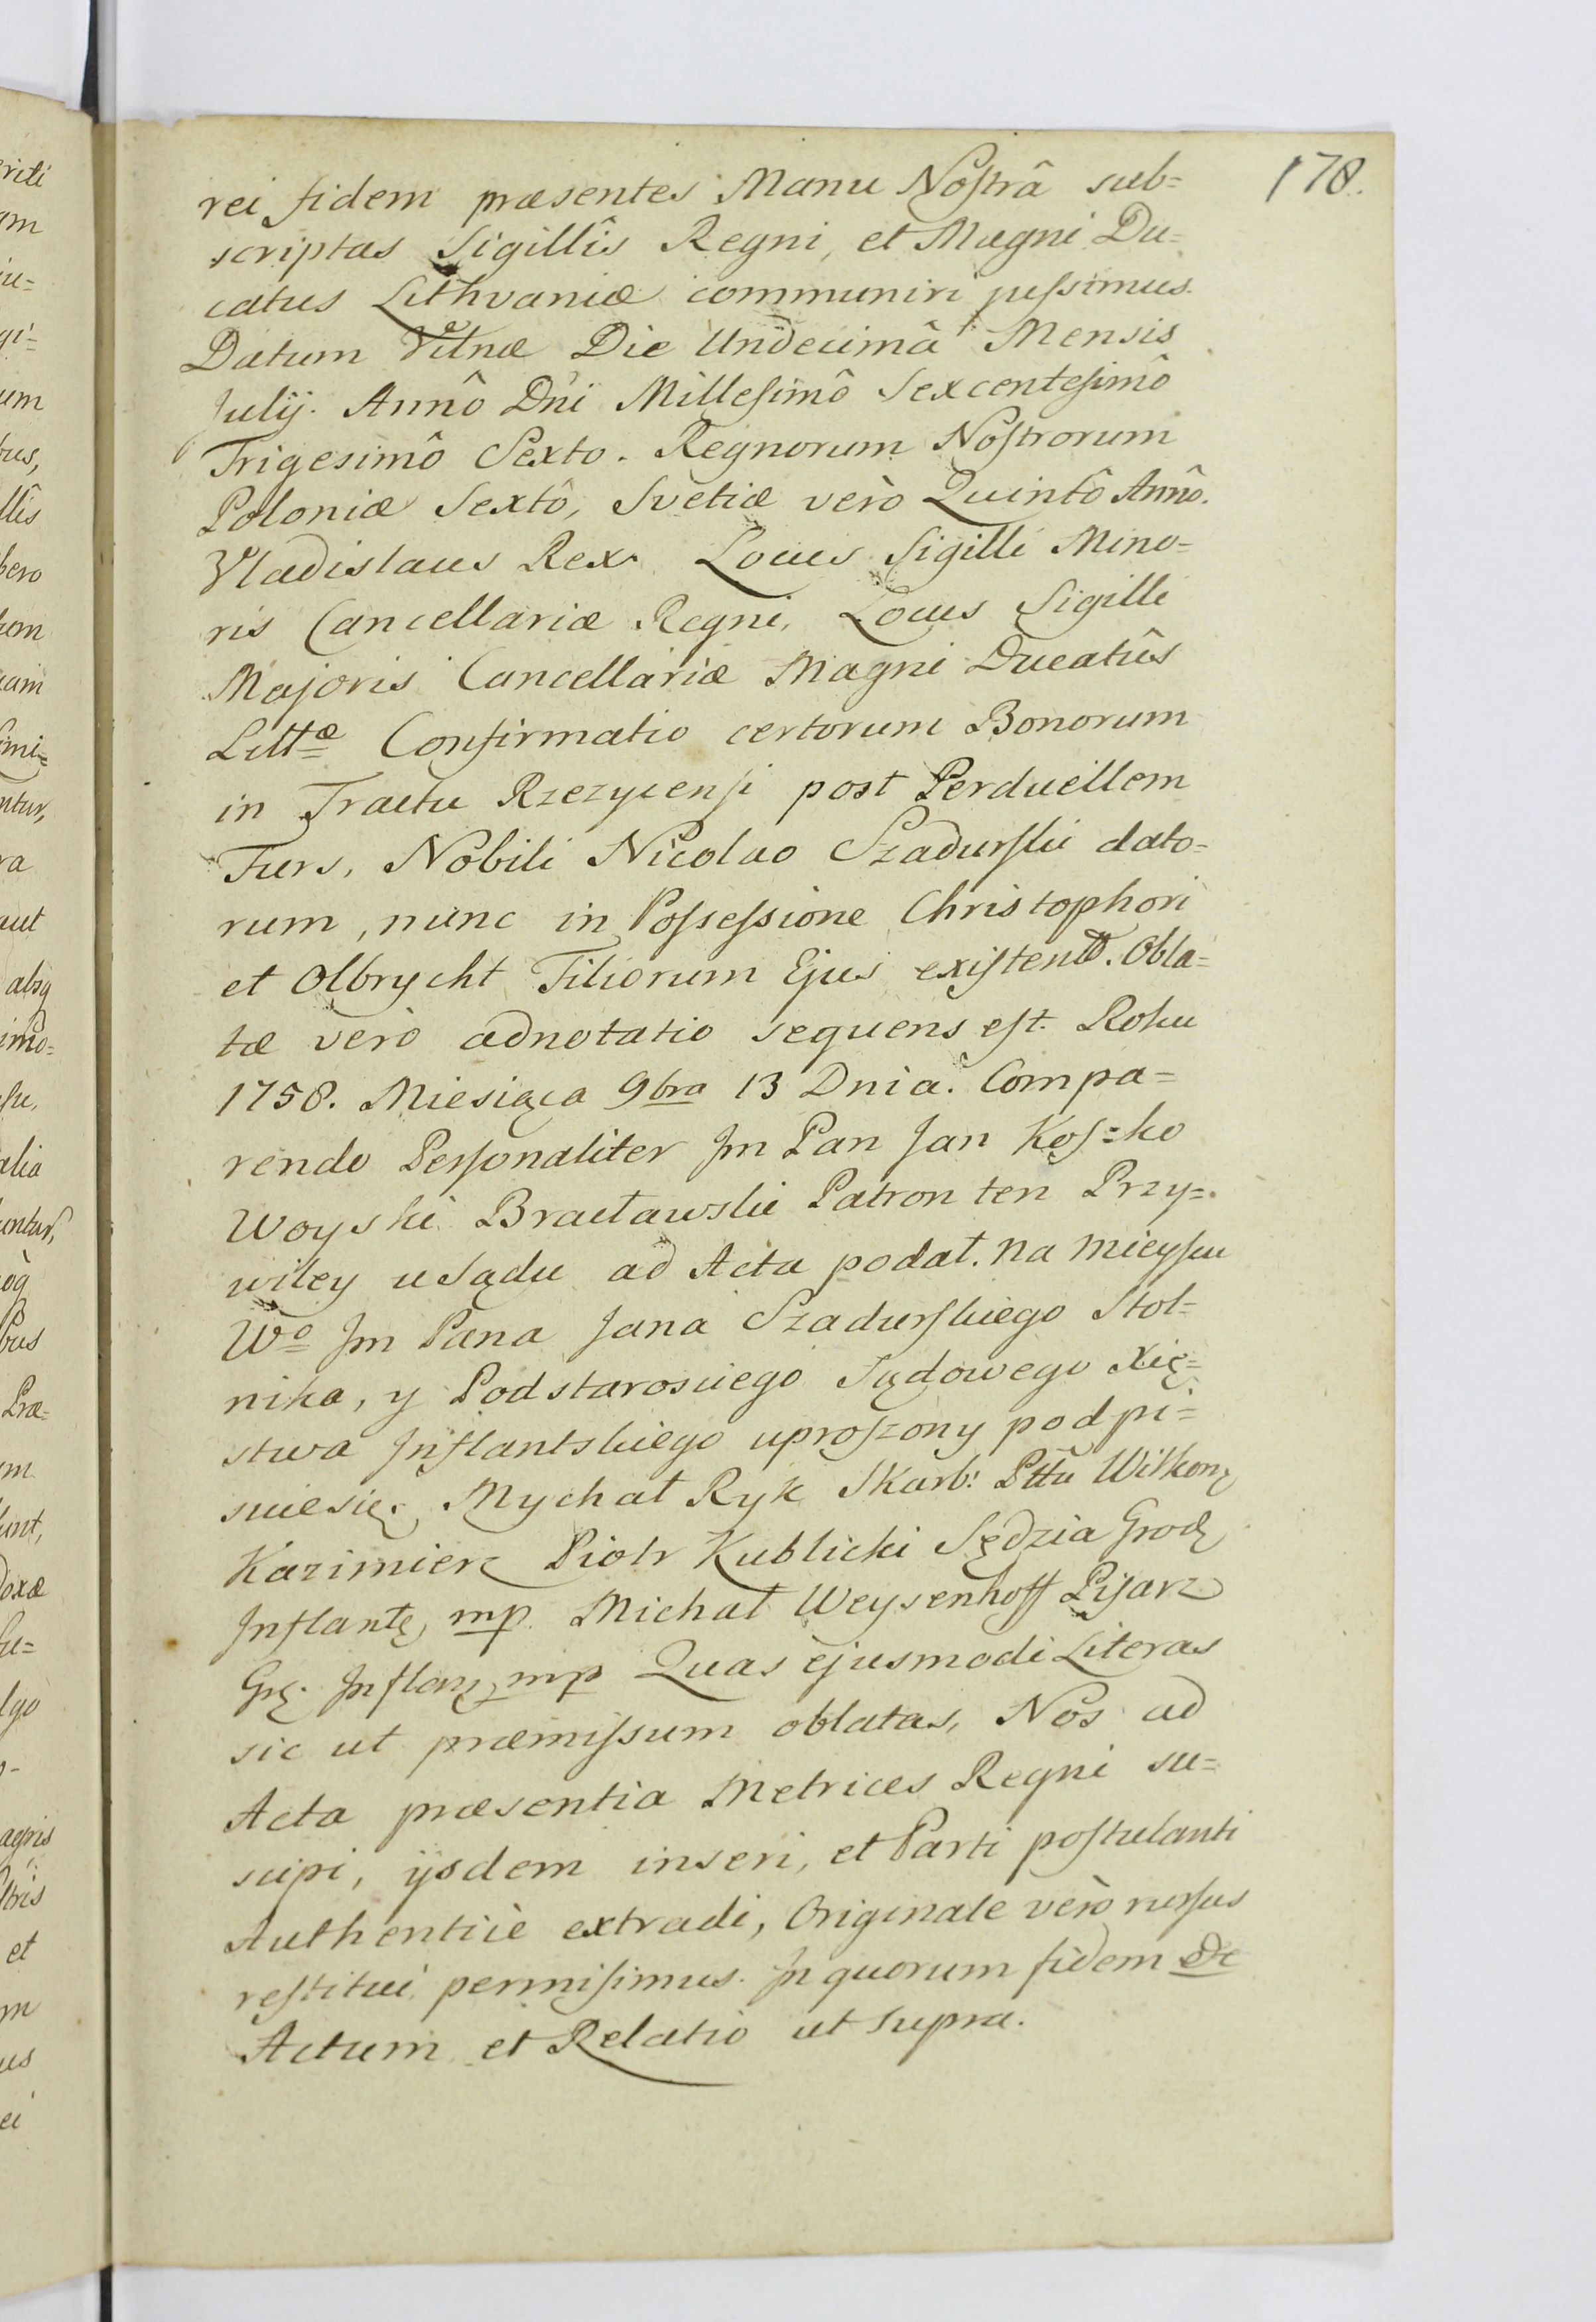 178.
rei fidem præsentes Manu Nostrâ sub=
scriptas Sigillîs Regni, et Magni Du=
catus Lithvaniæ communiri jussimus.
Datum Vilnæ Die Undecimâ Mensis
Julij. Annô Dñi Millesimô Sexcentesimô
Trigesimô Sexto. Regnorum Nostrorum
Poloniæ Sextô, Svetiæ verò Quintô Annô.
Vladislaus Rex. Locus Sigilli Mino=
ris Cancellariæ Regni, Locus Sigilli
Majoris Cancellariæ Magni Ducatûs
Littæ Confirmatio certorum Bonorum
in Tractu Rzezycensi post Perduellem
Turs, Nobili Nicolao Szadurski dato=
rum, nunc in Possessione Christophori
et Olbrycht Filiorum Ejus existent. Obla=
tæ verò adnotatio sequens est. Roku
1758. Miesiąca 9bra 13 Dnia. Compa=
rendo Personaliter Jm Pan Jan Kos=ko
Woyski Bracławski Patron ten Przy=
wiley u Sądu ad Acta podał. Na mieyscu
Wo Jm Pana Jana Szadurskiego Stol=
nika, y Podstarosciego Sądowego Xię=
stwa Jnflantskiego uproszony podpi=
suie się. Mychał Ryk Skarb: Pttu Wilkom
Kazimierz Piotr Kublicki Sędzia Grodz
Jnflantz mp. Michał Weysenhoff Pisarz
Grz. Jnflanz mp Quas ejusmodi Literas
sic ut præmissum oblatas, Nos ad
Acta præsentia Metrices Regni su=
scipi, ijsdem inseri, et Parti postulanti
Authenticè extradi, Originale verò rursus
restitui permisimus. Jn quorum fidem &c
Actum et Relatio ut supra.